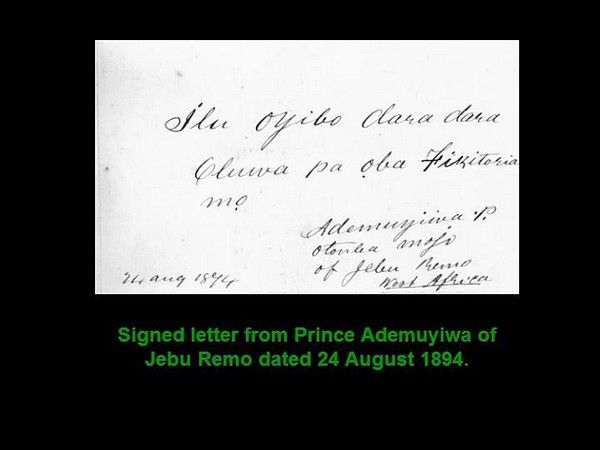 Ilu oyibo dara dara
Oluwa pa ọba Fikitoria
mọ
Ademuyiwa P.
Otonba mojo
of Jebu Remo
West Africa
24 aug 1894
Signed letter from Prince Ademuyiwa of
Jebu Remo dated 24 August 1894.